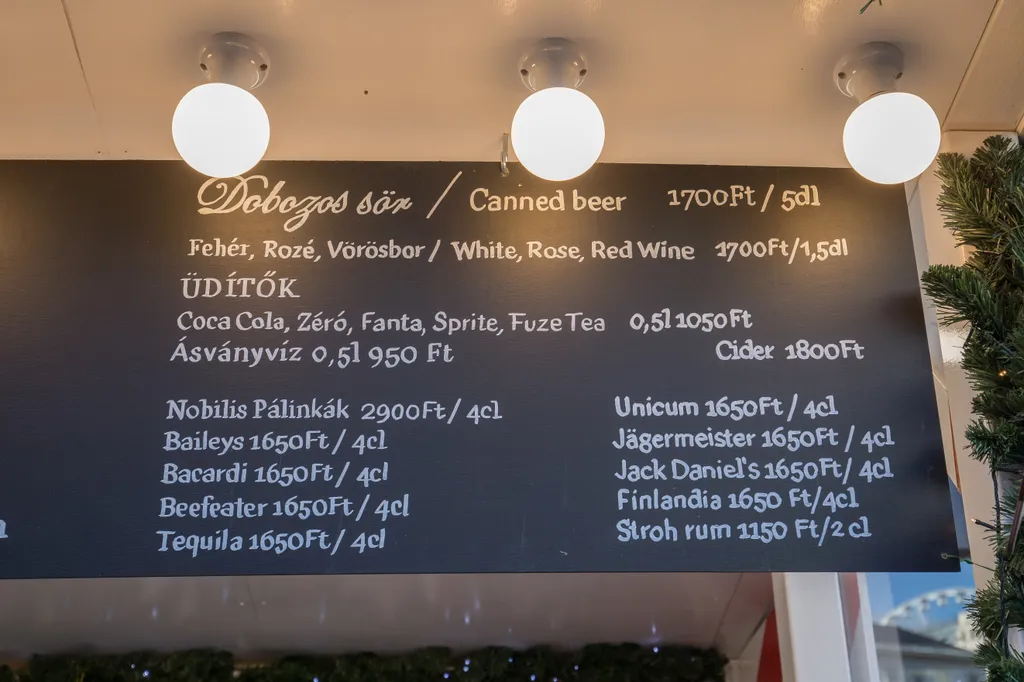 Dobozos sör / Canned beer 1700Ft / 5dl
Fehér, Rozé, Vörösbor / White, Rose, Red Wine 1700Ft/1,5dl
ÜDÍTŐK
Coca Cola, Zéró, Fanta, Sprite, Fuze Tea 0,5l 1050Ft
Ásványvíz 0,5l 950 Ft
Cider 1800Ft
Nobilis Pálinkák 2900Ft/ 4cl
Baileys 1650Ft / 4cl
Bacardi 1650Ft / 4cl
Beefeater 1650Ft / 4cl
Tequila 1650Ft / 4cl
Unicum 1650Ft / 4cl
Jägermeister 1650Ft / 4cl
Jack Daniel's 1650Ft / 4cl
Finlandia 1650 Ft/4cl
Stroh rum 1150 Ft/2 cl